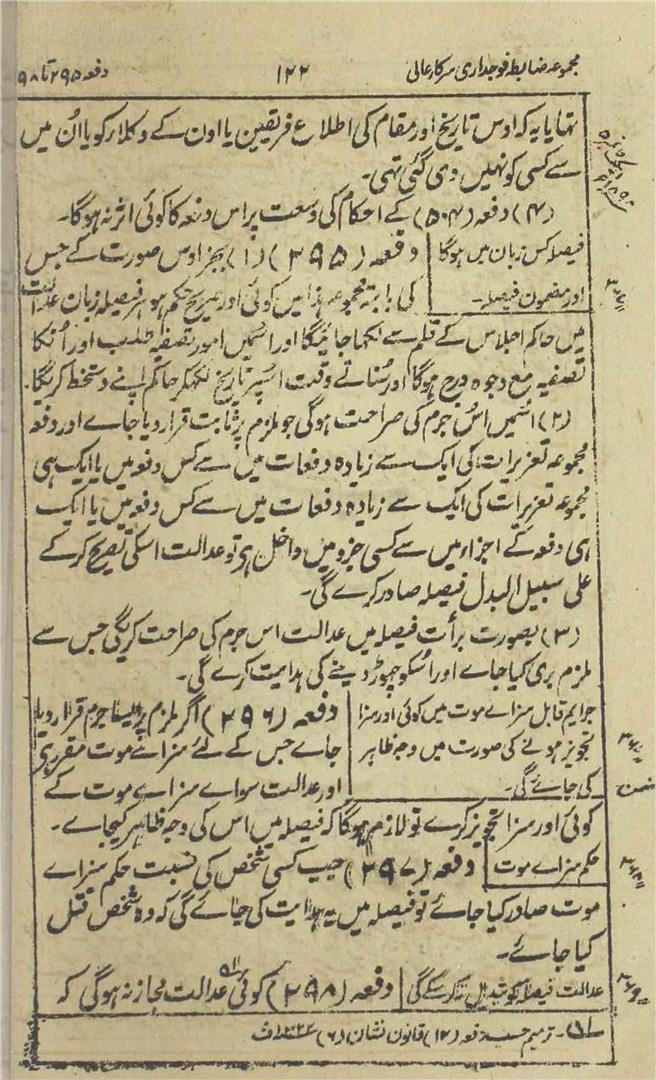 مجموعہ ضابطہ فوجداری سرکار عالی
۱۲۲
دفعہ ۲۹۵ تا ۲۹۸
تھا یا یہ کہ اوس تاریخ اور مقام کی اطلاع فریقین یا اون کے وکلاء کو یا اُن میں
سے کسی کو نہیں دی گئی تہی۔
(۴) دفعہ (۵۰۴) کے احکام کی وسعت پر اس دفعہ کا کوئی اثر نہ ہوگا۔
فیصلہ کس زبان میں ہوگا
اور مضمون فیصلہ۔
دفعہ (۲۹۵) (۱) بجز اوس صورت کے جس
کی بابتہ مجموعہ ہذا میں کوئی اور صریح حکم ہو ہر فیصلہ زبان عدالت
میں حاکم اجلاس کے قلم سے لکھا جائیگا اور اسمیں امور تصفیہ طلب اور اُنکا
تصفیہ مع وجوہ درج ہوگا اور سُناتے وقت اسپر تاریخ لکھکر حاکم اپنے دستخط کریگا۔
(۲) اسمیں اُس جرم کی صراحت ہوگی جو ملزم پر ثابت قرار دیا جاے اور دفعہ
مجموعہ تعزیرات کی ایک سے زیادہ دفعات میں سے کس دفعہ میں یا ایک ہی
مجموعہ تعزیرات کی ایک سے زیادہ دفعات میں سے کس دفعہ میں یا ایک
ہی دفعہ کے اجزاء میں سے کسی جزو میں داخل ہی تو عدالت اسکی تصریح کرکے
علی سبیل البدل فیصلہ صادر کرے گی۔
(۳) بصورت برأت فیصلہ میں عدالت اس جرم کی صراحت کریگی جس سے
ملزم بری کیا جاے اور اُسکو چھوڑ دینے کی ہدایت کرے گی۔
جرایم قابل سزاے موت میں کوئی اور سزا
تجویز ہونے کی صورت میں وجہ ظاہر
کی جاے گی۔
دفعہ (۲۹۶) اگر ملزم پر ایسا جرم قرار دیا
جاے جس کے لئے سزاے موت مقرر ہی
اور عدالت سواے سزاے موت کے
کوئی اور سزا تجویز کرے تو لازم ہوگا کہ فیصلہ میں اس کی وجہ ظاہر کیجاے۔
حکم سزاے موت
دفعہ (۲۹۷) جب کسی شخص کی نسبت حکم سزاے
موت صادر کیا جاے تو فیصلہ میں یہ ہدایت کی جاے گی کہ وہ شخص قتل
کیا جاے۔
عدالت فیصلہ کو تبدیل نہ کرسکے گی
دفعہ (۲۹۸) کوئی عدالت مجاز نہ ہوگی کہ
۔ ترمیم حسب دفعہ (۱۲) قانون نشان (۶)